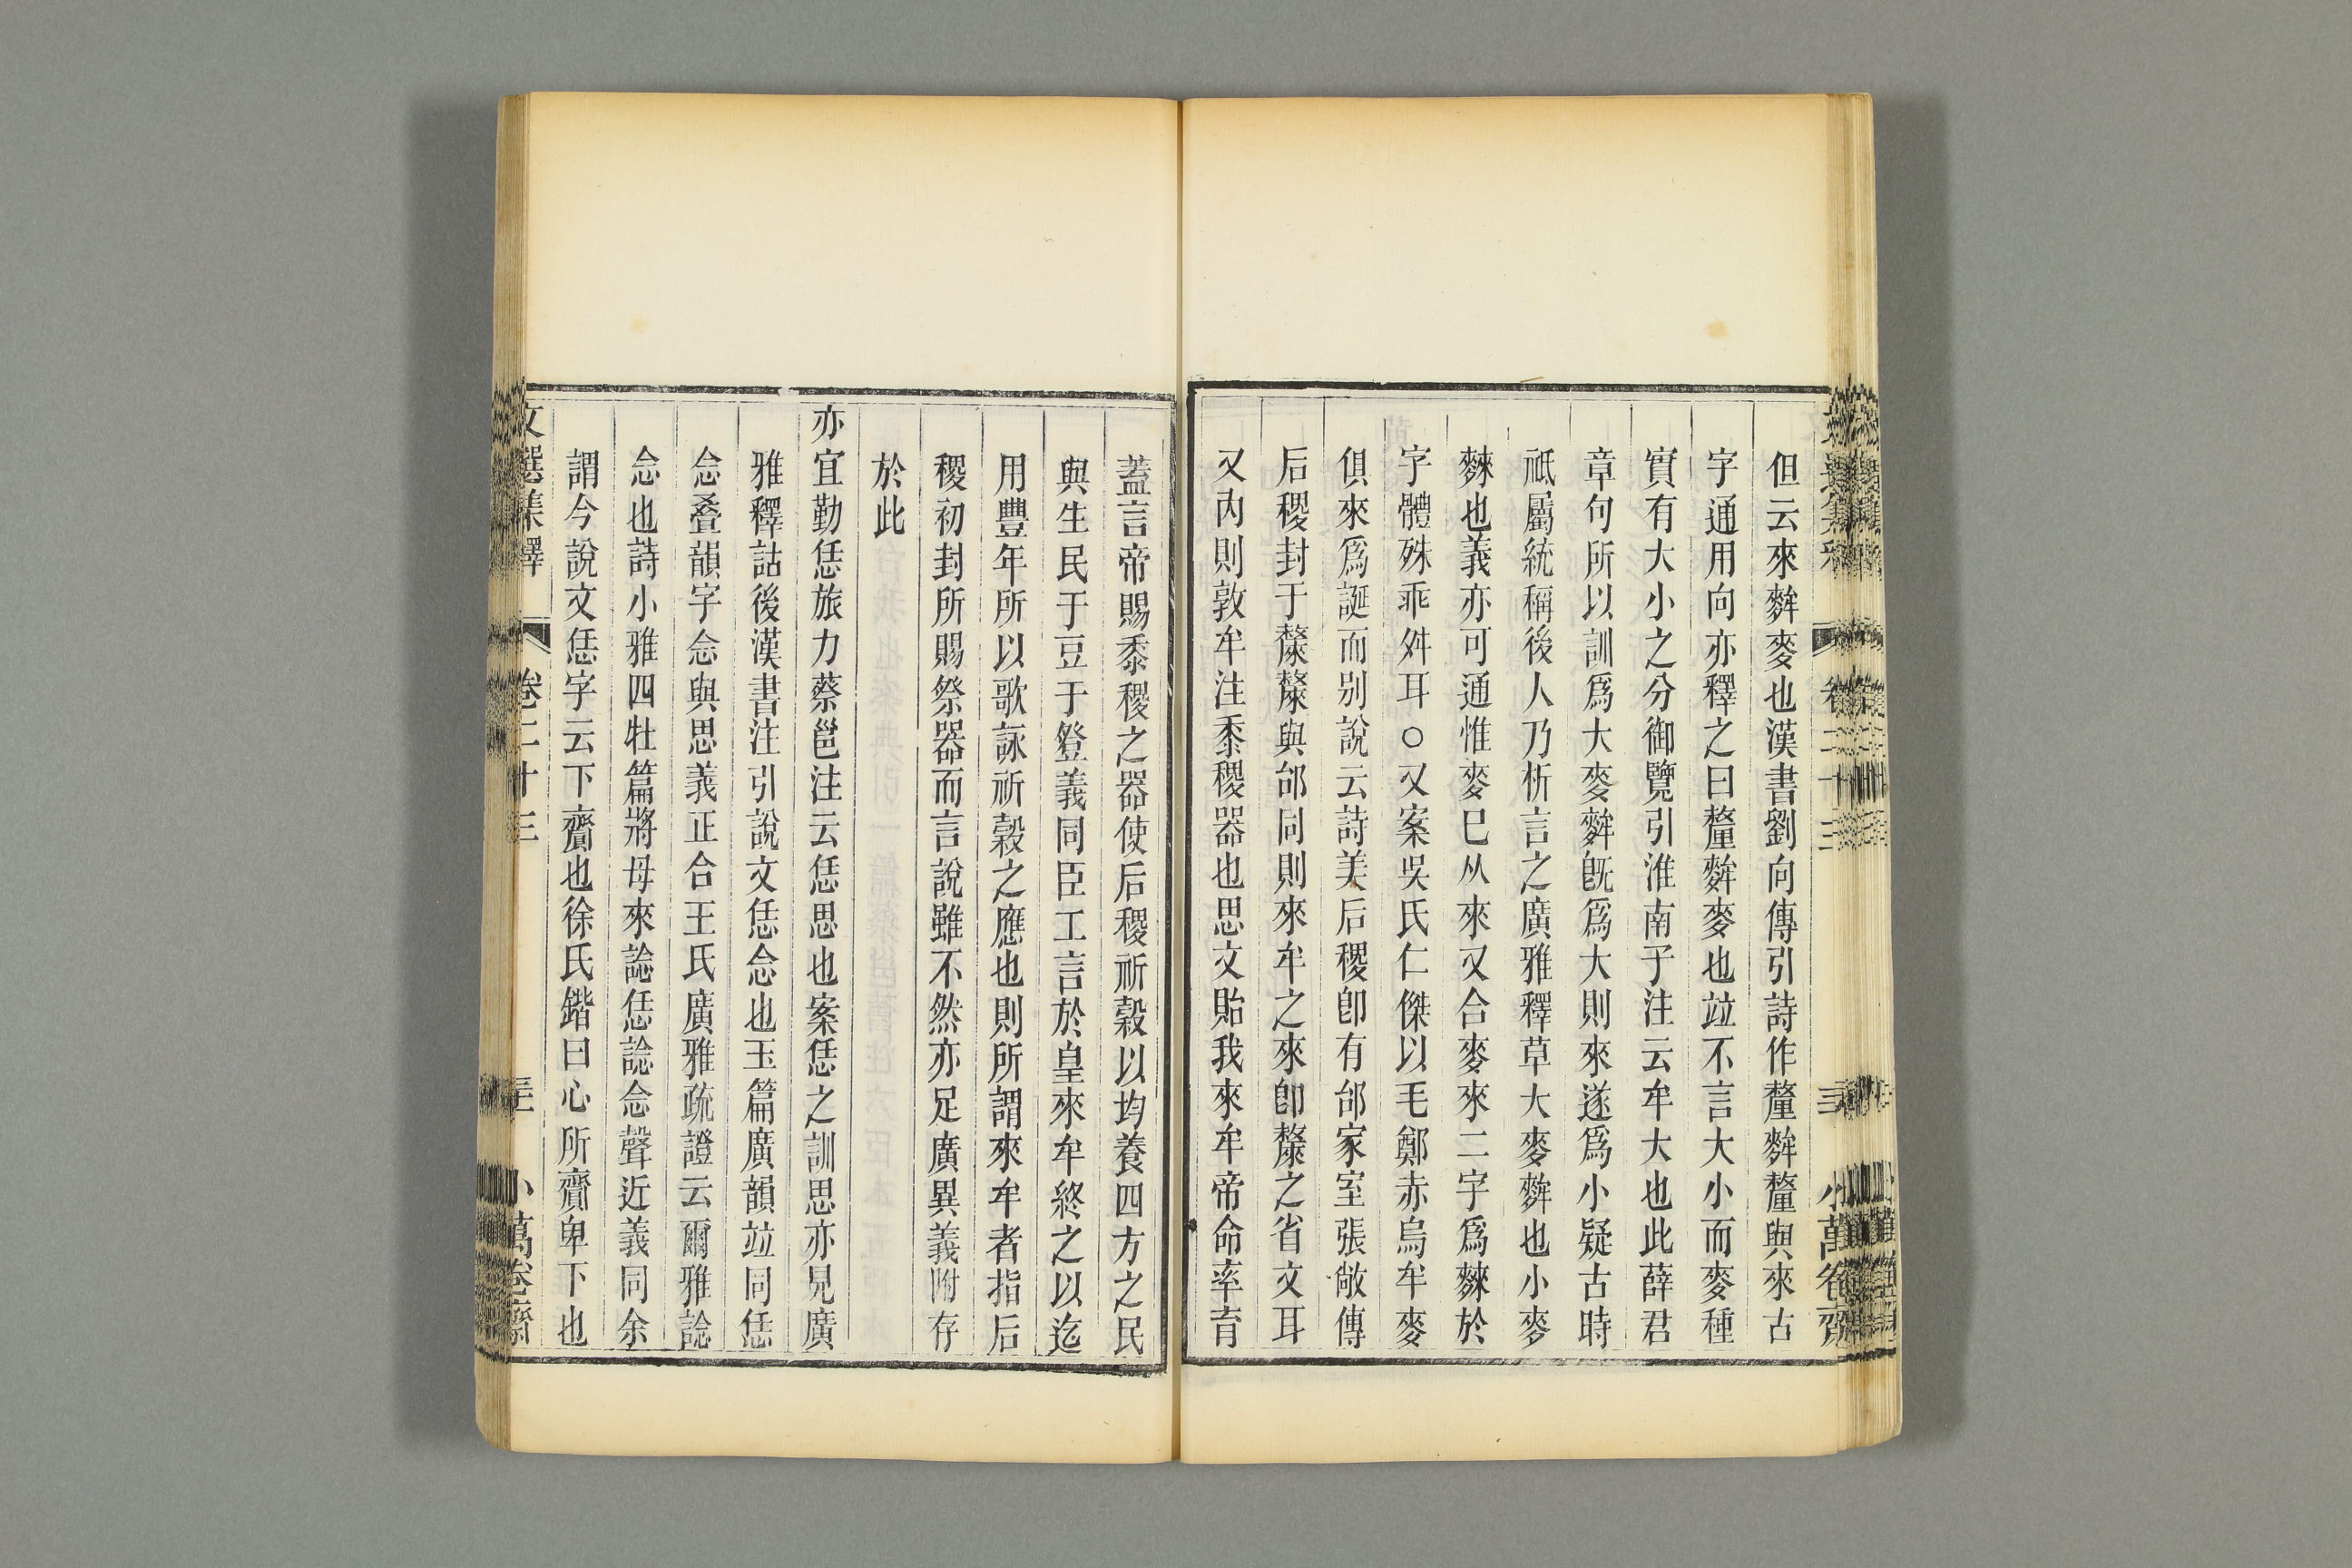 但云來麰麥也漢書劉向傳引詩作釐麰釐與來古
字通用向亦釋之曰釐麰麥也竝不言大小而麥種
實有大小之分御覽引淮南子注云牟大也此薛君
章句所以訓爲大麥麰旣爲大則來遂爲小疑古時
祇屬統稱後人乃析言之廣雅釋草大麥麰也小麥
麳也義亦可通惟麥已从來又合麥來二字爲麳於
字體殊乖舛耳○又案吳氏仁傑以毛鄭赤烏牟麥
俱來爲誕而别說云詩美后稷卽有邰家室張敞傳
后稷封于斄斄與邰同則來牟之來卽斄之省文耳
又內則敦牟注黍稷器也思文貽我來牟帝命率育
蓋言帝賜黍稷之器使后稷祈穀以均養四方之民
與生民于豆于登義同臣工言於皇來牟終之以迄
用豐年所以歌詠祈穀之應也則所謂來牟者指后
稷初封所賜祭器而言說雖不然亦足廣異義附存
於此
亦宜勤恁旅力蔡邕注云恁思也案恁之訓思亦見廣
雅釋詁後漢書注引說文恁念也玉篇廣韻竝同恁
念叠韻字念與思義正合王氏廣雅疏證云爾雅諗
念也詩小雅四牡篇將母來諗恁諗念聲近義同余
謂今說文恁字云下齎也徐氏鍇曰心所齎卑下也
文選集釋 卷二十三 三十 小萬卷齋